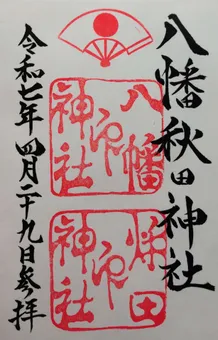 八幡秋田神社
八幡
印
神社
秋田
印
神社
令和七年四月二十九日参拝